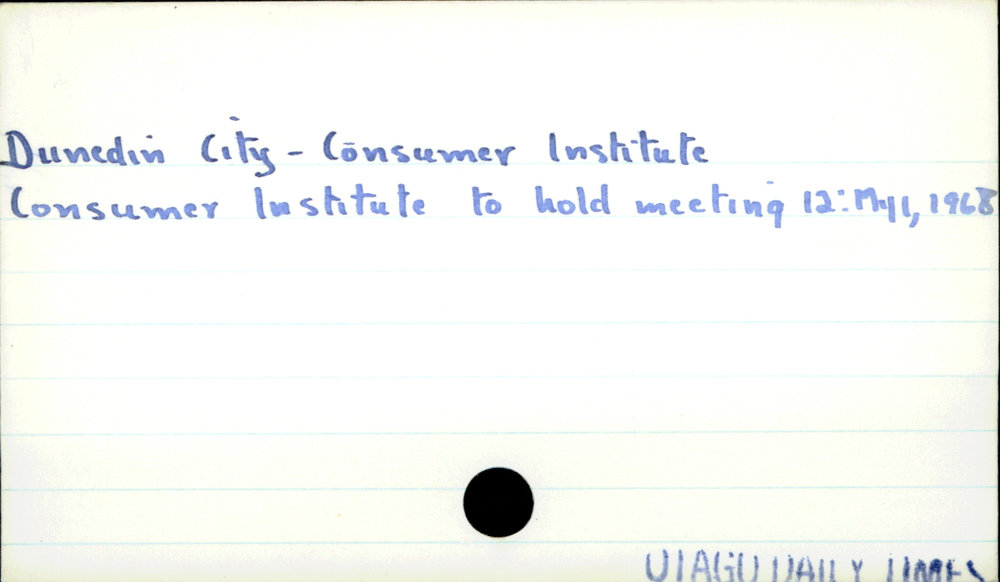 Dunedin City - Consumer Institute
Consumer Institute to hold meeting 12: My 1, 1968
OTAGO DAILY TIMES